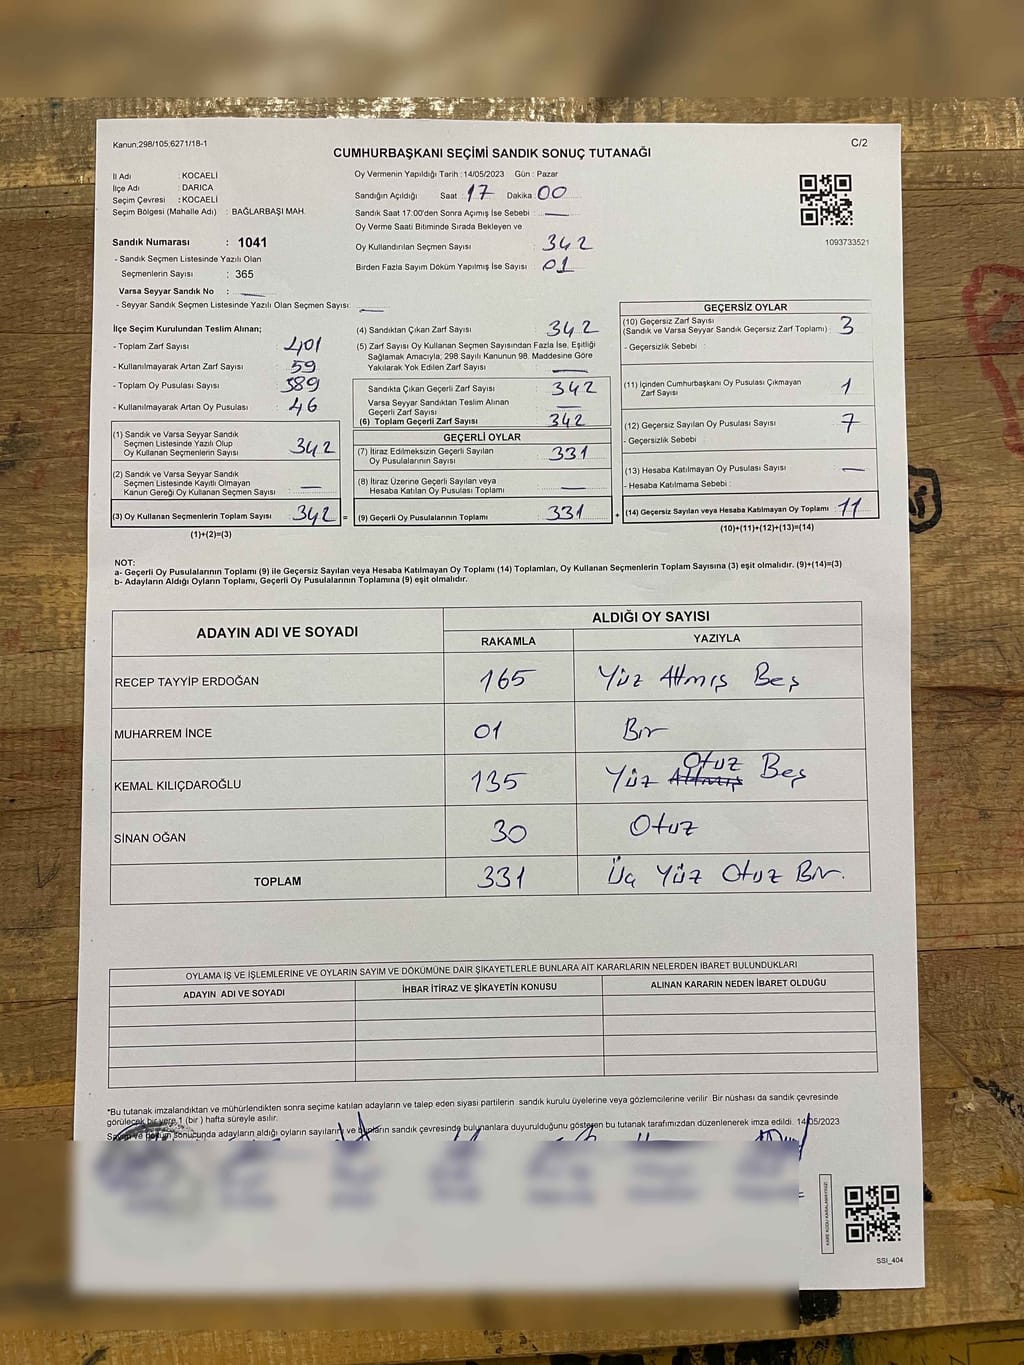 Kanun;298/105;6271/18-1
C/2
CUMHURBAŞKANI SEÇİMİ SANDIK SONUÇ TUTANAĞI
İl Adı : KOCAELİ
İlçe Adı : DARICA
Seçim Çevresi : KOCAELİ
Seçim Bölgesi (Mahalle Adı) : BAĞLARBAŞI MAH.
Sandık Numarası : 1041
- Sandık Seçmen Listesinde Yazılı Olan
Seçmenlerin Sayısı : 365
Varsa Seyyar Sandık No :
- Seyyar Sandık Seçmen Listesinde Yazılı Olan Seçmen Sayısı:
Oy Vermenin Yapıldığı Tarih :14/05/2023 Gün : Pazar
Sandığın Açıldığı Saat 17 Dakika 00
Sandık Saat 17.00'den Sonra Açılmış İse Sebebi :
Oy Verme Saati Bitiminde Sırada Bekleyen ve
Oy Kullandırılan Seçmen Sayısı 342
Birden Fazla Sayım Döküm Yapılmış İse Sayısı 01
1093733521
İlçe Seçim Kurulundan Teslim Alınan;
- Toplam Zarf Sayısı : 401
- Kullanılmayarak Artan Zarf Sayısı : 59
- Toplam Oy Pusulası Sayısı : 389
- Kullanılmayarak Artan Oy Pusulası : 46
(1) Sandık ve Varsa Seyyar Sandık
Seçmen Listesinde Yazılı Olup
Oy Kullanan Seçmenlerin Sayısı 342
(2) Sandık ve Varsa Seyyar Sandık
Seçmen Listesinde Kayıtlı Olmayan
Kanun Gereği Oy Kullanan Seçmen Sayısı
(3) Oy Kullanan Seçmenlerin Toplam Sayısı 342 =
(1)+(2)=(3)
(4) Sandıktan Çıkan Zarf Sayısı 342
(5) Zarf Sayısı Oy Kullanan Seçmen Sayısından Fazla İse, Eşitliği
Sağlamak Amacıyla, 298 Sayılı Kanunun 98. Maddesine Göre
Yakılarak Yok Edilen Zarf Sayısı
Sandıkta Çıkan Geçerli Zarf Sayısı 342
Varsa Seyyar Sandıktan Teslim Alınan
Geçerli Zarf Sayısı
(6) Toplam Geçerli Zarf Sayısı 342
GEÇERLİ OYLAR
(7) İtiraz Edilmeksizin Geçerli Sayılan
Oy Pusulalarının Sayısı 331
(8) İtiraz Üzerine Geçerli Sayılan veya
Hesaba Katılan Oy Pusulası Toplamı
(9) Geçerli Oy Pusulalarının Toplamı 331 +
GEÇERSİZ OYLAR
(10) Geçersiz Zarf Sayısı
(Sandık ve Varsa Seyyar Sandık Geçersiz Zarf Toplamı) 3
- Geçersizlik Sebebi :
(11) İçinden Cumhurbaşkanı Oy Pusulası Çıkmayan
Zarf Sayısı 1
(12) Geçersiz Sayılan Oy Pusulası Sayısı 7
- Geçersizlik Sebebi :
(13) Hesaba Katılmayan Oy Pusulası Sayısı
- Hesaba Katılmama Sebebi :
(14) Geçersiz Sayılan veya Hesaba Katılmayan Oy Toplamı 11
(10)+(11)+(12)+(13)=(14)
NOT:
a- Geçerli Oy Pusulalarının Toplamı (9) ile Geçersiz Sayılan veya Hesaba Katılmayan Oy Toplamı (14) Toplamları, Oy Kullanan Seçmenlerin Toplam Sayısına (3) eşit olmalıdır. (9)+(14)=(3)
b- Adayların Aldığı Oyların Toplamı, Geçerli Oy Pusulalarının Toplamına (9) eşit olmalıdır.
ADAYIN ADI VE SOYADI
ALDIĞI OY SAYISI
RAKAMLA YAZIYLA
RECEP TAYYİP ERDOĞAN 165 Yüz Altmış Beş
MUHARREM İNCE 01 Bir
KEMAL KILIÇDAROĞLU 135 Yüz Altmış Otuz Beş
SİNAN OĞAN 30 Otuz
TOPLAM 331 Üç Yüz Otuz Bir.
OYLAMA İŞ VE İŞLEMLERİNE VE OYLARIN SAYIM VE DÖKÜMÜNE DAİR ŞİKAYETLERLE BUNLARA AİT KARARLARIN NELERDEN İBARET BULUNDUKLARI
ADAYIN ADI VE SOYADI İHBAR İTİRAZ VE ŞİKAYETİN KONUSU ALINAN KARARIN NEDEN İBARET OLDUĞU
*Bu tutanak imzalandıktan ve mühürlendikten sonra seçime katılan adayların ve talep eden siyasi partilerin sandık kurulu üyelerine veya gözlemcilerine verilir. Bir nüshası da sandık çevresinde
görülecek bir yere 1 (bir) hafta süreyle asılır.
Sayım ve döküm sonucunda adayların aldığı oyların sayılarını ve bunların sandık çevresinde bulunanlara duyurulduğunu gösteren bu tutanak tarafımızdan düzenlenerek imza edildi. 14/05/2023
SSI_404